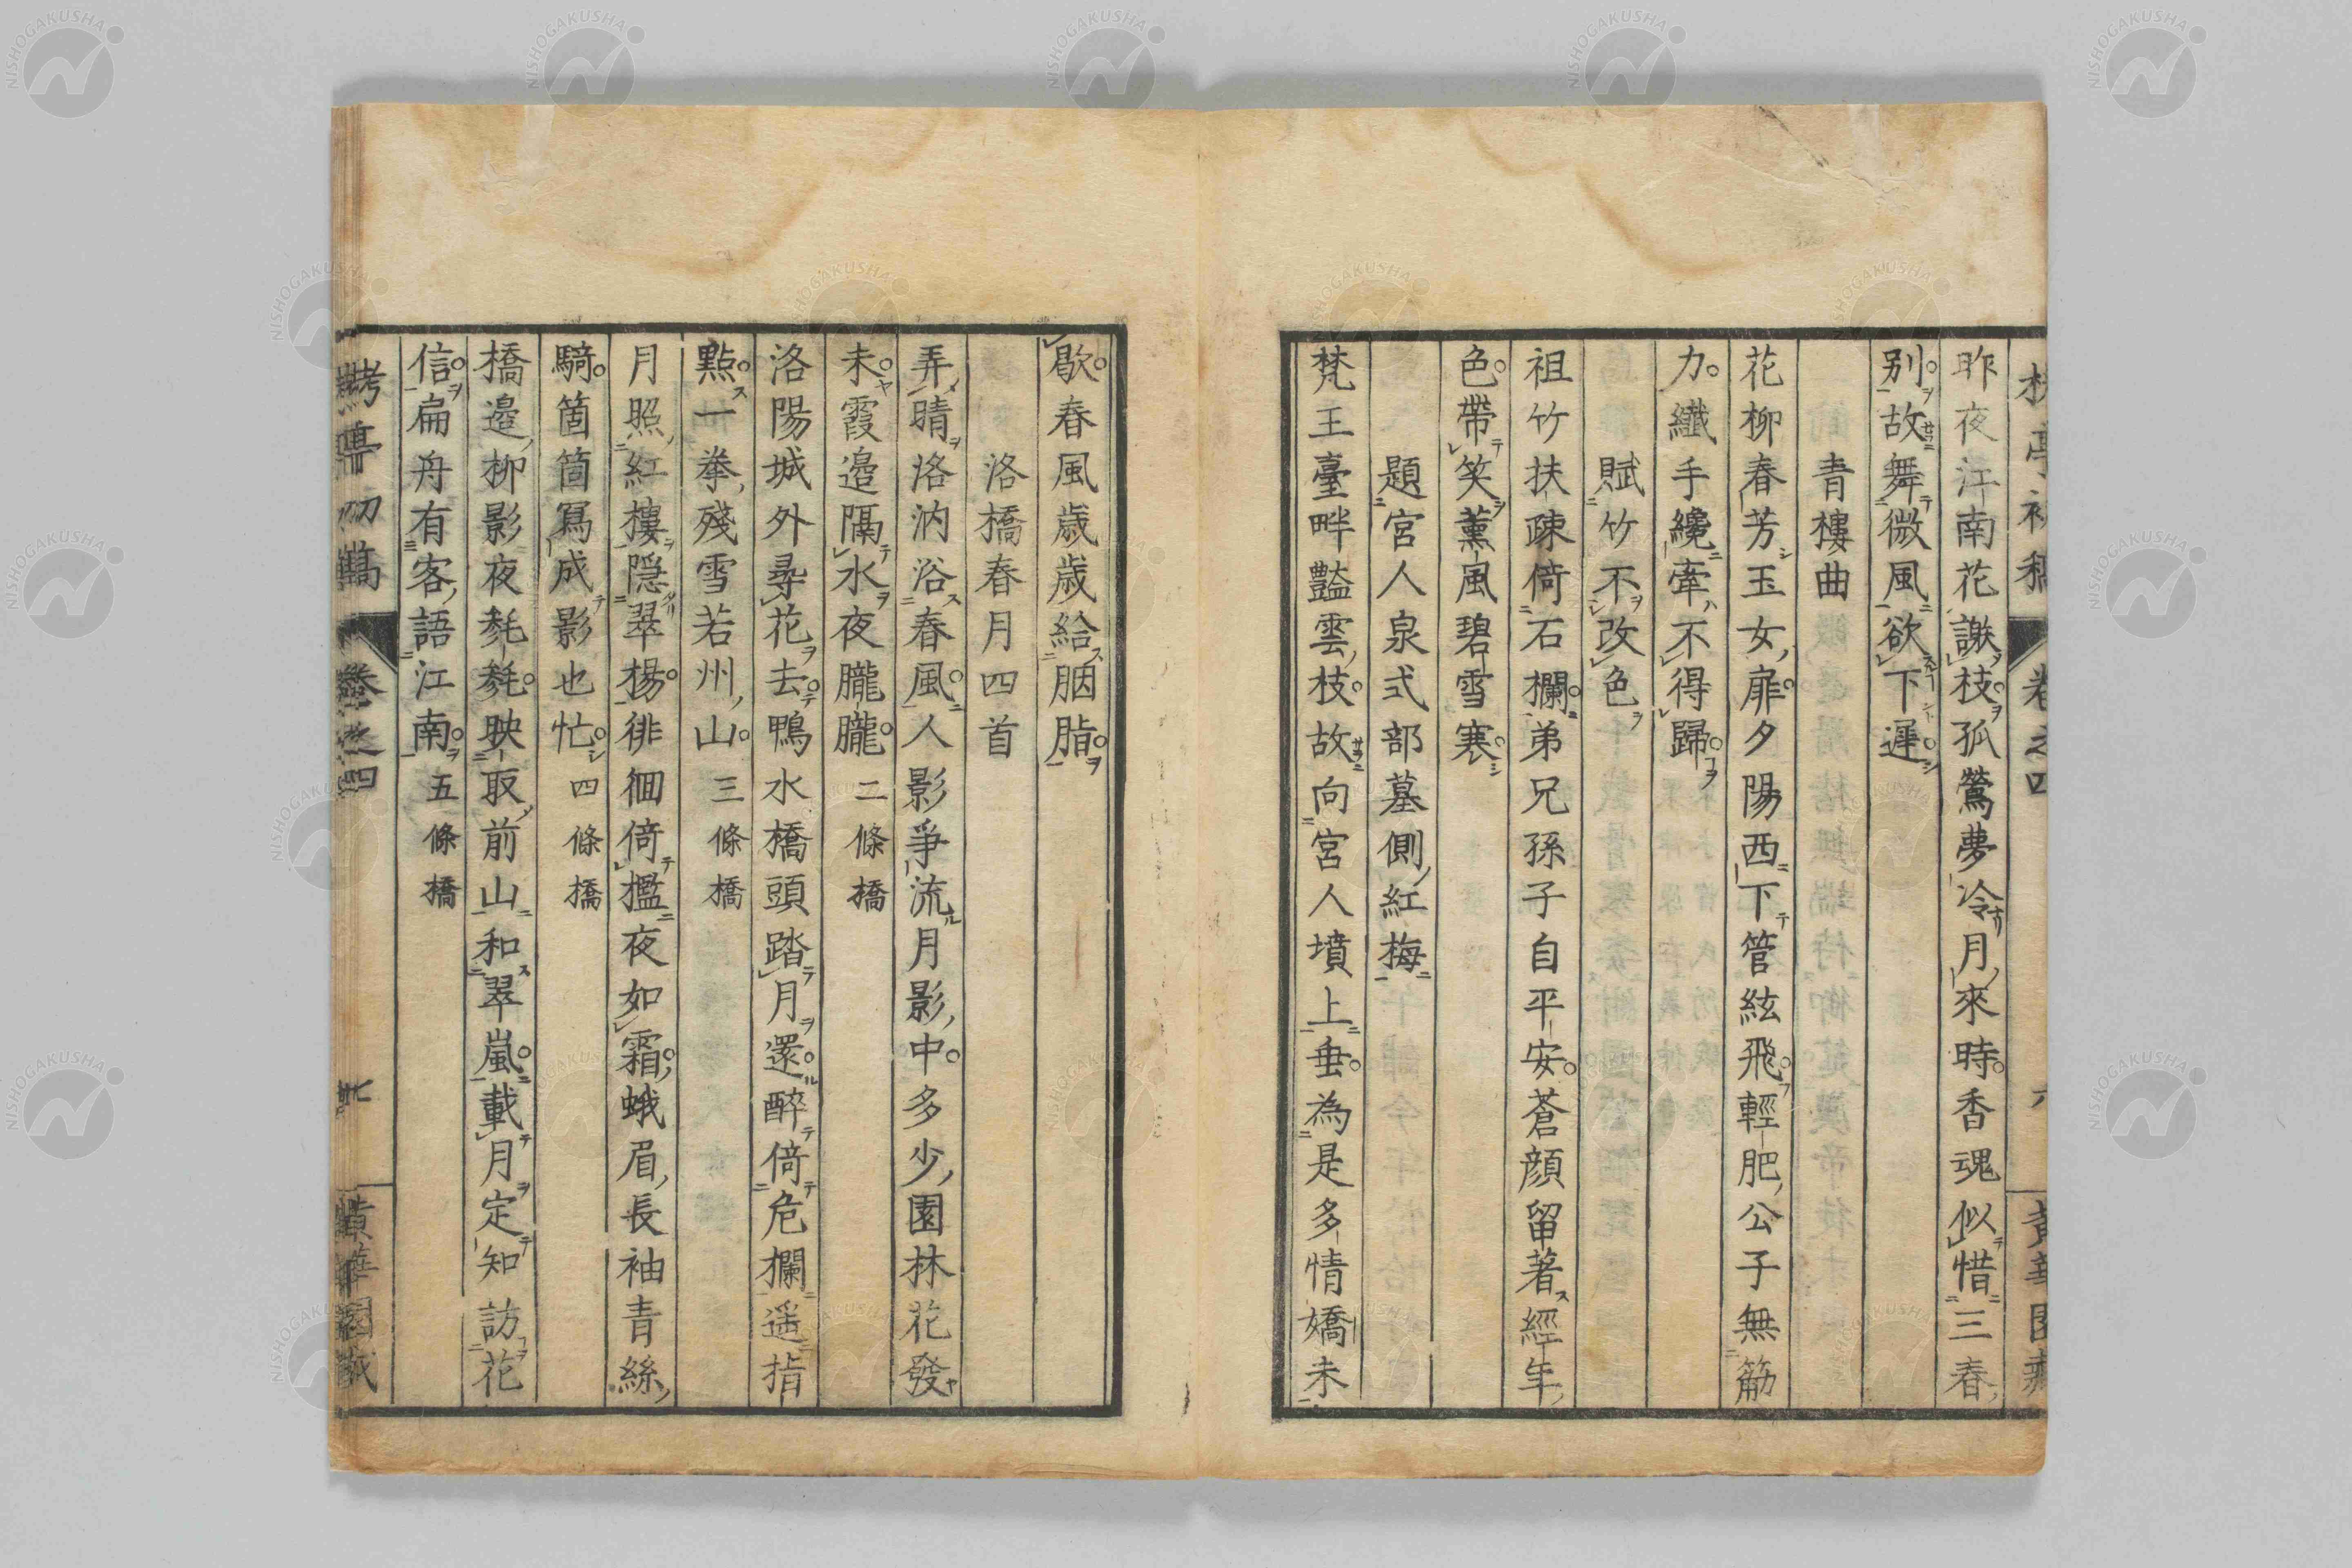 昨夜江南花謝枝孤鶯夢冷月來時香魂似惜三春
别故舞微風欲下遲
青樓曲
花柳春芳玉女扉夕陽西下管絃飛輕肥公子無筋
力纖手纔牽不得歸
賦竹不改色
祖竹扶疎倚石欄弟兄孫子自平安蒼顏留著經年
色帶笑薰風碧雪寒
題宮人泉式部墓側紅梅
梵王臺畔豔雲枝故向宮人墳上垂為是多情嬌未
歇春風歲歲給胭脂
洛橋春月四首
弄晴洛汭浴春風人影爭流月影中多少園林花發
未霞邉隔水夜朧朧 二條橋
洛陽城外尋花去鴨水橋頭踏月還醉倚危欄遥指
點一拳殘雪若州山 三條橋
月照紅樓隐翠楊徘徊倚檻夜如霜蛾眉長袖青絲
騎箇箇寫成影也忙 四條橋
橋邉柳影夜毿毿映取前山和翠嵐載月定知訪花
信扁舟有客語江南 五條橋
卷之四
NISHOGAKUSHA